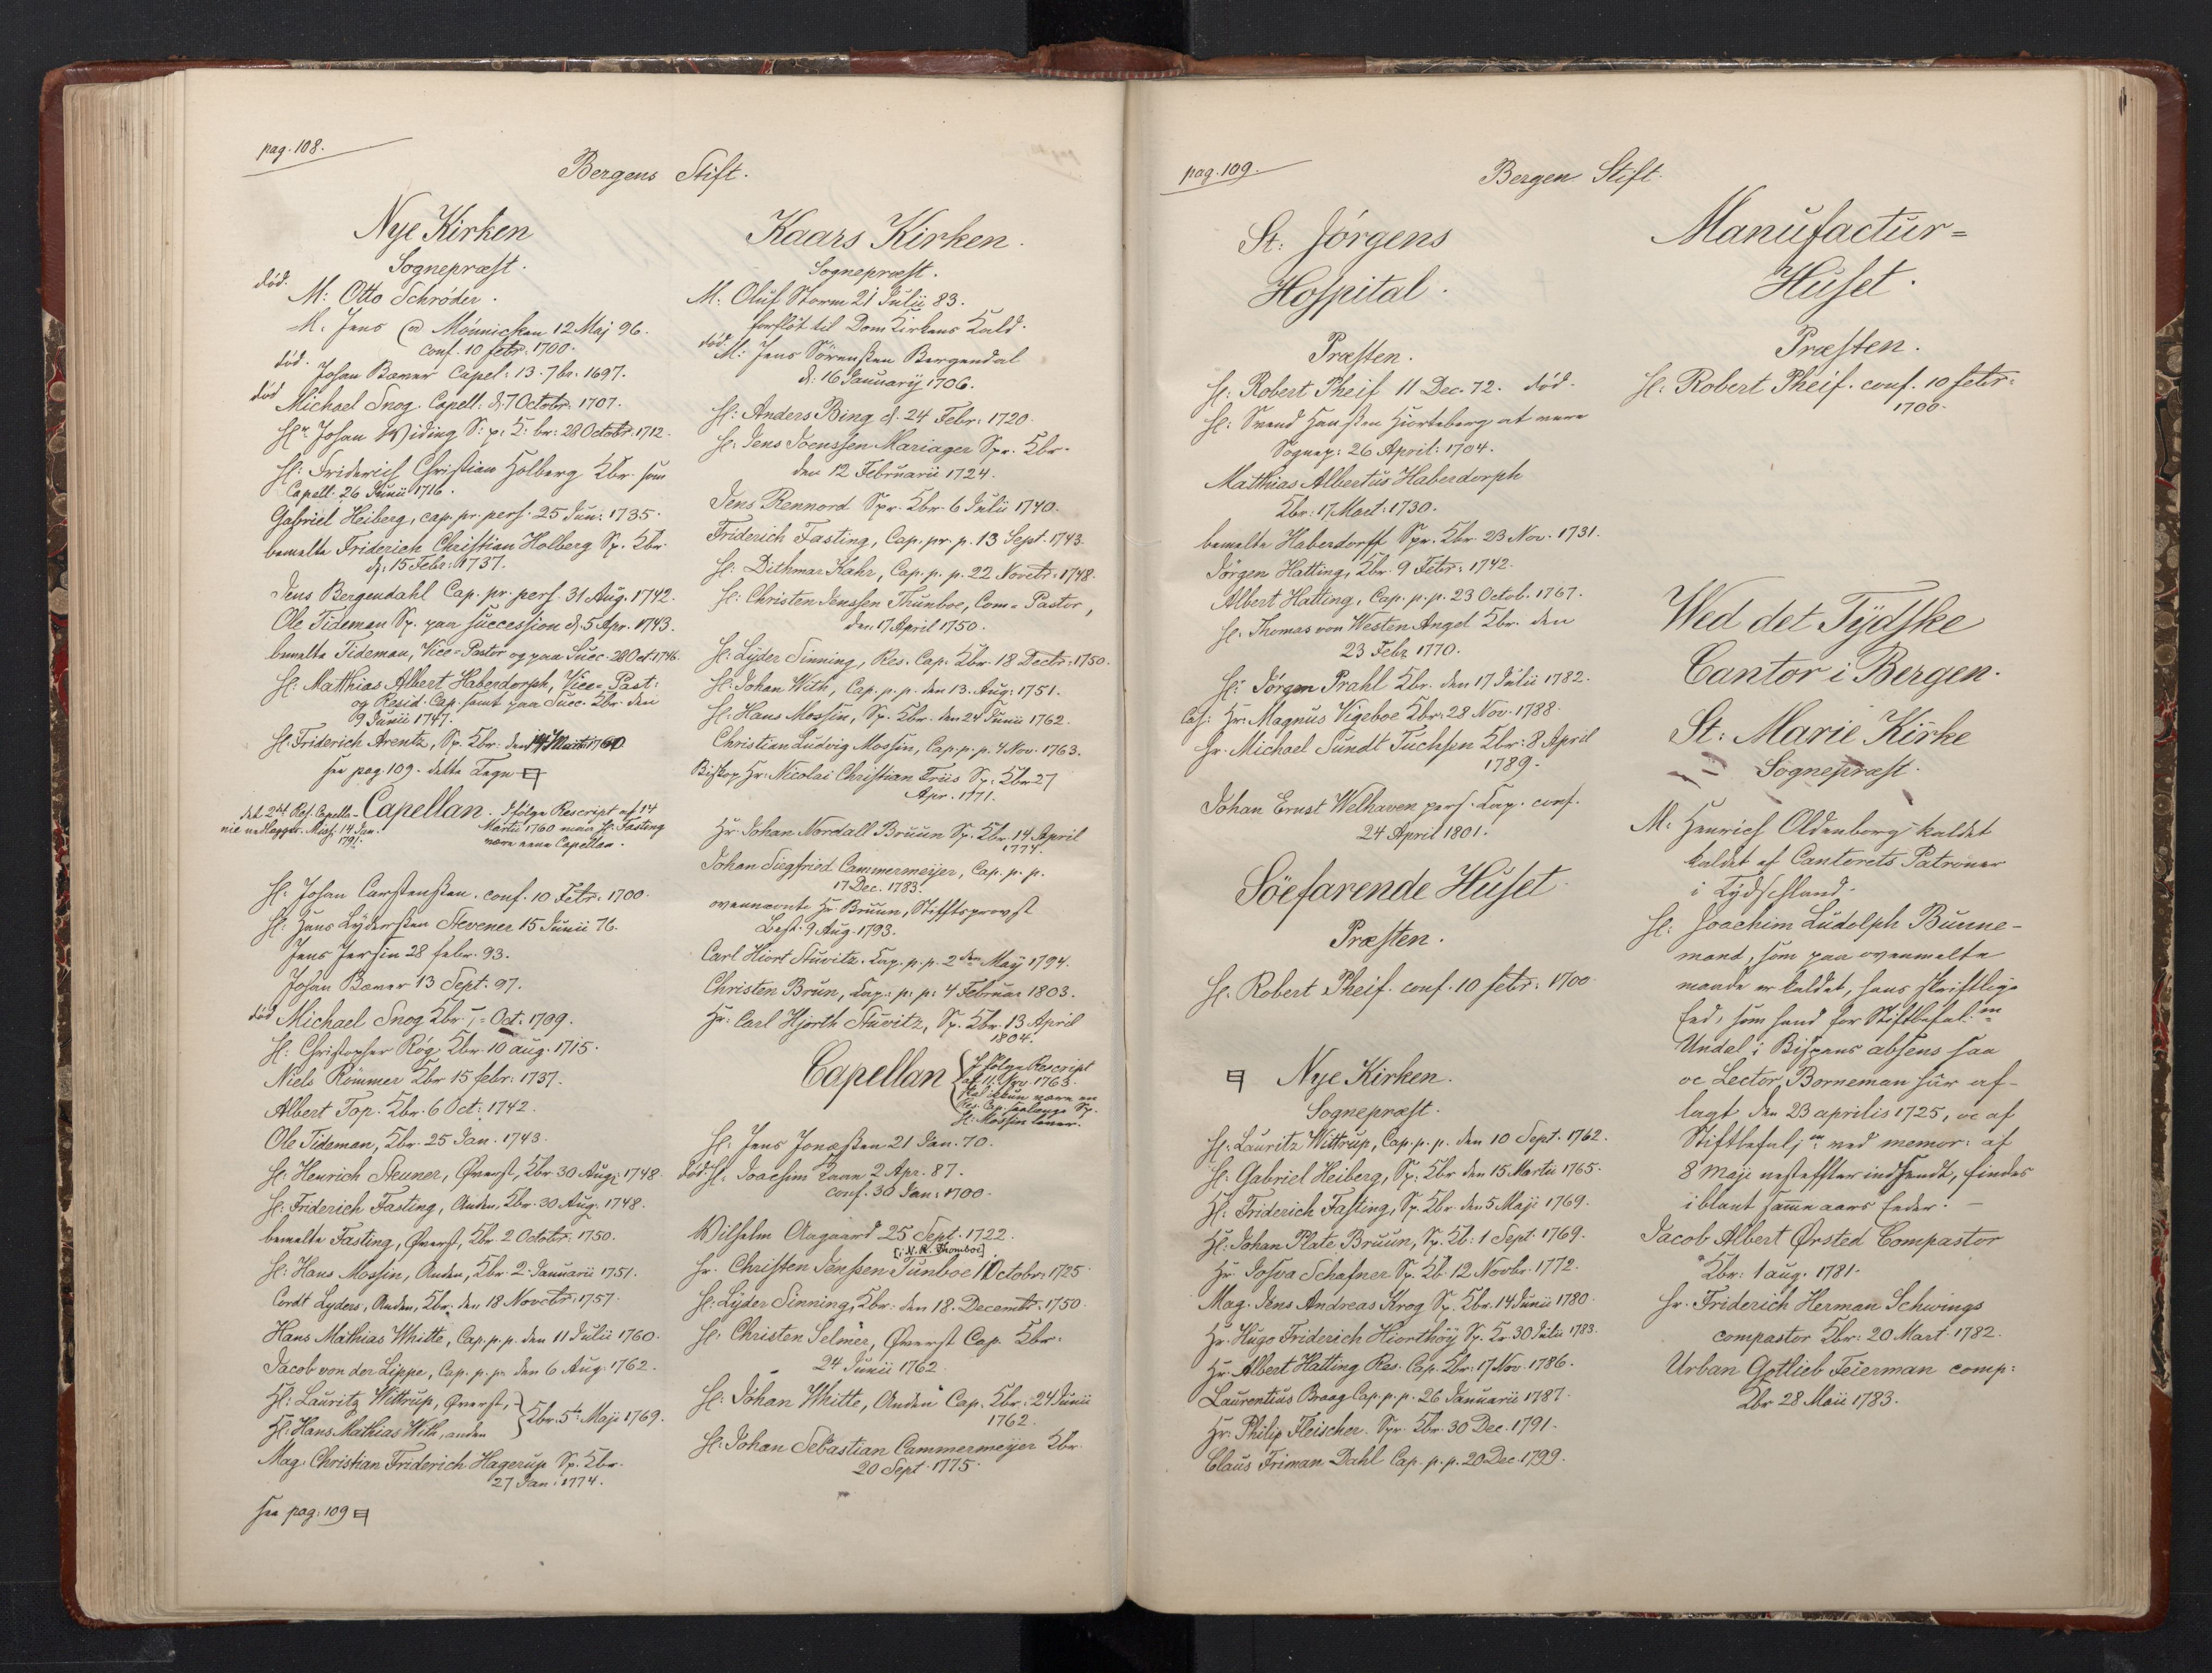 pag. 108.
Bergens Stift.
Nye Kirken
Sognepræst.
død.
M: Otto Schrøder.
M. Jens Mönnichen 12 Maj 96.
conf. 10 febr. 1700.
død. Johan Bæmer Capel: 13. 7br. 1697.
død Michael Snog. Capell: d. 7 Octobr. 1707.
Hr. Johan Widing S: p: K. br: 28 Octobr. 1712.
H: Friderich Christian Holberg Kbr. som
Capell. 26 Junii 1716.
Gabriel Heiberg, cap. pr. pers. 25 Jun: 1735.
bemelte Friderich Christian Holberg Sp. Kbr.
d. 15 Febr: 1737.
Jens Bergendahl Cap. pr. pers. 31 Aug. 1742.
Ole Tideman Sp. paa succession d. 5 Apr. 1743.
bemelte Tideman, Vice-Pastor og paa Succ. 28 Oct. 1746.
H: Matthias Albert Haberdorph, Vice-Past:
og Resid. Cap. samt paa Succ. Kbr. den
9 Junii 1747.
H. Friderich Arentz, Sp. Kbr: den 14 Martii 1760
see pag. 109. dette Tegn
Capellan.
det 2det Res. Capella-
nie nedlagger. Miss. 14 Jan.
1791.
Ifølge Rescript af 14
Martii 1760 maa H. Fasting
være ene Capellan.
H. Johan Carstensen. conf. 10 Febr. 1700.
H: Hans Lydersen Stevener 15 Junii 76.
Jens Jersin 28 febr. 93.
Johan Bæmer 13 Sept. 97.
død Michael Snog Kbr. 7 Oct. 1709.
H: Christopher Røg Kbr. 10 aug. 1715.
Niels Römmer Kbr 15 febr: 1737.
Albert Top. Kbr. 6 Oct: 1742.
Ole Tideman, Kbr. 25 Jan. 1743.
H: Henrich Steuner, Øverst, Kbr. 30 Aug. 1748.
H: Friderich Fasting, Anden, Kbr. 30 Aug. 1748.
bemelte Fasting, Øverst, Kbr. 2 Octobr. 1750.
H: Hans Mossin, Anden, Kbr. 2. Januarii 1751.
Cordt Lyders, Anden, Kbr. den 18 Novebr: 1757.
Hans Mathias Whitte, Cap. p. p. den 11 Julii 1760.
Jacob von der Lippe, Cap. p. p. den 6 Aug. 1762.
H: Lauritz Wittrup, Øverst,
H: Hans Mathias With, anden
Kbr. 5te Maji 1769.
Mag. Christian Friderich Hagerup Sp. Kbr.
27 Jan. 1774.
see pag: 109
Kaars Kirken.
Sognepræst.
M. Oluf Storm 21 Julii 83.
forfløt til DomKirkens Kald.
død. M: Jens Sørensen Bergendal
d: 16 Januarij 1706.
H: Anders Bing d. 24 Febr: 1720.
H: Jens Joenssen Mariager Spr. Kbr.
den 12 Februarii 1724.
Jens Rennord Spr. Kbr. 6 Julii 1740.
Friderich Fasting, Cap. pr. p. 13 Sept. 1743.
H: Dithmar Kahr, Cap. p. p. 22 Novebr: 1748.
H: Christen Jenssen Thunboe, Com-Pastor,
den 17 April 1750.
H: Lyder Sinning, Res. Cap. Kbr 18 Decbr: 1750.
H: Johan With, Cap. p. p. den 13. Aug: 1751.
H: Hans Mossin, Sp. Kbr. den 24 Junii 1762.
Christian Ludvig Mossin, Cap. p. p. 4 Nov. 1763.
Biskop Hr: Nicolai Christian Friis Sp: Kbr 27
Apr. 1771.
Hr. Johan Nordall Bruun Sp. Kbr. 14 April
1774.
Johan Siegfried Cammermeijer, Cap. p. p.
17 Dec. 1783.
ovennævnte Hr. Bruun, Stiftsprovst
Best. 9 Aug. 1793.
Carl Hiort Stuvitz. Cap. p. p. 2den May 1794.
Christen Brun, Cap. p. p: 4 Februar 1803.
Hr: Carl Hjorth Stuvitz, Sp. Kbr. 13 April
1804.
Capellan
Ifølge Rescript
af 11. Nov. 1763.
skal ikkun være en
Res. Cap. saalænge Sp.
H: Mossin lever.
H: Jens Jonæsen 21 Jan. 70.
død. H: Joachim Kaan 2 Apr. 87.
conf. 30 Jan: 1700.
Wilhelm Aagaard 25 Sept. 1722.
[: N. R. Thomboe]
Hr. Christen Jenssen Tunboe 11 Octobr: 1725
H: Lyder Sinning, Kbr: den 18. Decembr: 1750.
H: Christen Selmer, Øverst Cap. Kbr:
24 Junii 1762
H: Johan Whitte, Anden Cap. Kbr. 24 Junii
1762.
H: Johan Sebastian Cammermeijer Kbr.
20 Sept. 1775.
pag. 109.
Bergen Stift.
St: Jörgens
Hospital.
Præsten.
H: Robert Pheif 11 Dec. 72. død.
H: Svend Hansen Hiorteberg at være
Sognep: 26 April: 1704.
Matthias Albertus Haberdorph
Kbr: 17 Mart: 1730.
bemelte Haberdorff Spr. Kbr. 23 Nov. 1731.
Jörgen Hatting, Kbr. 9 Febr: 1742.
Albert Hatting, Cap. p. p. 23 Octob. 1767.
H: Thomas von Westen Angel Kbr. den
23 Febr 1770.
H: Jörgen Prahl Kbr. den 17 Julii 1782.
Hr: Magnus Vigeboe Kbr: 28 Nov. 1788.
Hr. Michael Sundt Tuchsen Kbr: 8 April
1789.
Johan Ernst Welhaven pers. Cap. conf.
24 April 1801.
Söefarende Huset
Præsten.
H. Robert Pheif. conf. 10 febr. 1700.
Nye Kirken.
Sognepræst.
H: Lauritz Wittrup, Cap. p. p. den 10 Sept. 1762.
H: Gabriel Heiberg, Sp: Kbr den 15 Martii 1765.
H: Friderich Fasting, Sp. Kbr. den 5 Maji 1769.
H: Johan Plate Bruun, Sp. Kb: 1 Sept. 1769.
Hr. Josva Schafner Sp. Kb. 12 Novbr. 1772.
Mag. Jens Andreas Krog Sp. Kbr. 14 Junii 1780.
Hr. Hugo Friderich Hiorthöy Sp. Kr. 30 Julii 1783.
Hr. Albert Hatting Res. Cap. Kbr: 17 Nov. 1786.
Laurentius Braag Cap. p. p. 26 Januarii 1787.
Hr: Philip Fleischer. Spr. Kbr. 30 Dec. 1791.
Claus Friman Dahl Cap. p. p. 20 Dec. 1799.
Manufactur=
Huset.
Præsten.
H: Robert Pheif. conf. 10 febr:
1700.
Wed det Tydske
Cantor i Bergen.
St: Marie Kirke
Sognepræst.
M: Henrich Oldenborg kaldet
kaldet af Cantorets Patroner
i Tydschland.
H: Joachim Ludolph Bunne-
mand, som paa ovenmelte
maade er kaldet, hans skriftlige
Eed, som hand for Stiftbefal:m
Undal i Bispens absens saa
oc Lector Borneman har af-
lagt den 23 aprilis 1725, oc af
Stiftbefal:m ved memor: af
8 Maji nesteffter indsendt, findes
iblant samme aars Eeder. —
Jacob Albert Ørsted Compastor
Kbr: 1 aug. 1781.
Hr. Friderich Herman Schwings
compastor Kbr: 20 Mart. 1782.
Urban Gotlieb Feierman comp:
Kbr 28 Maii 1783.